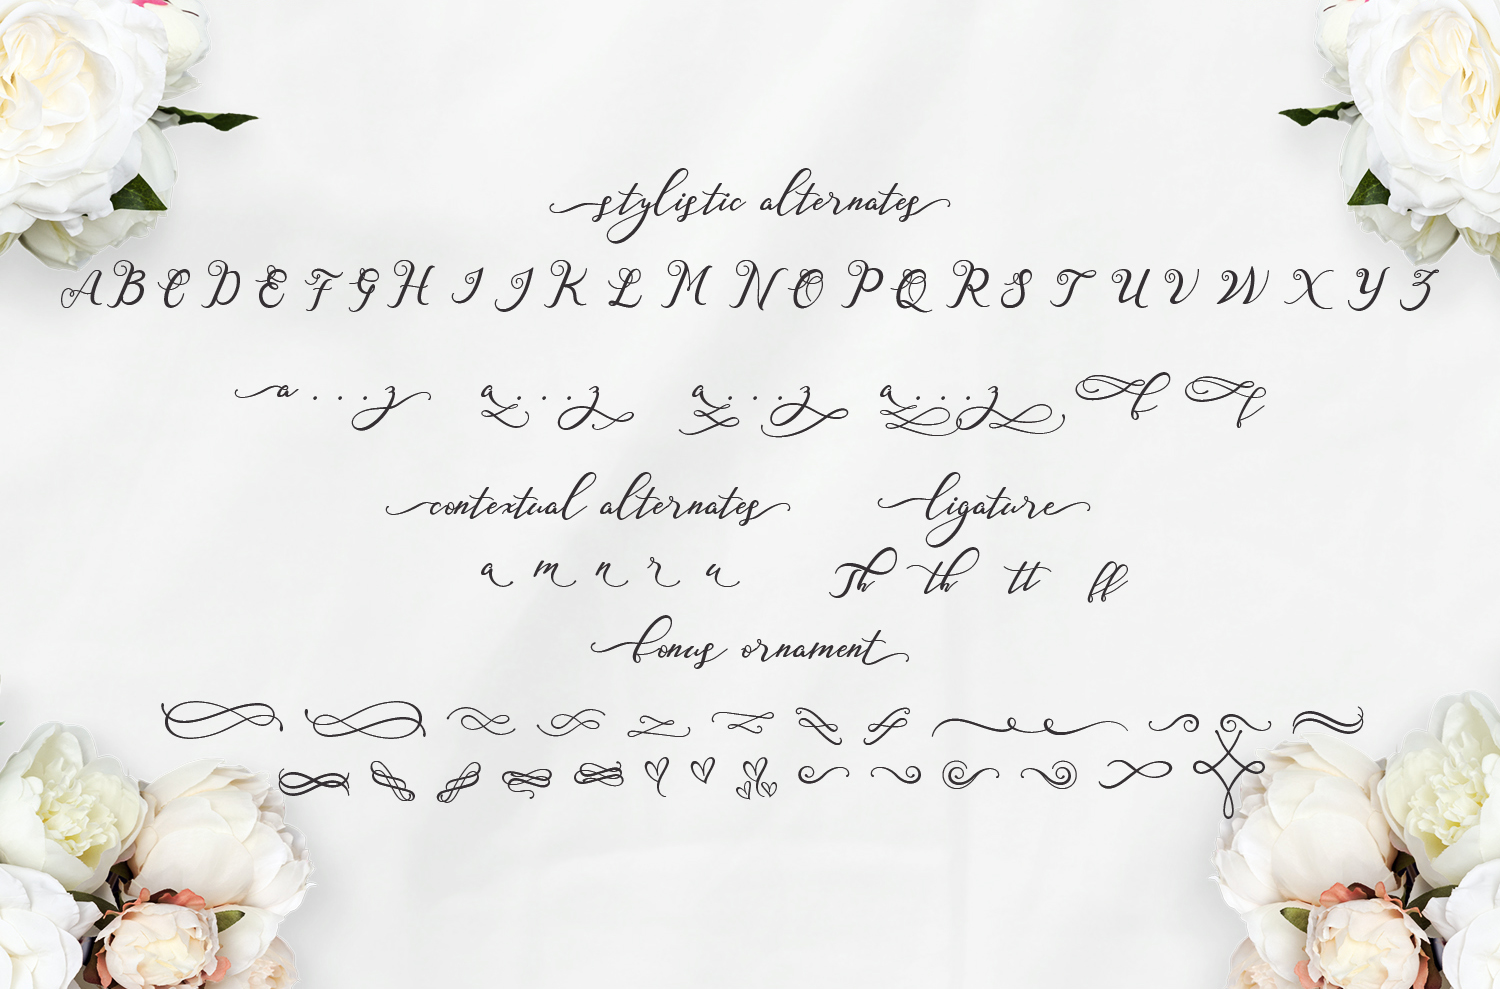 stylistic alternates
A B C D E F G H I J K L M N O P Q R S T U V W X Y Z
a...z a...z a...z a...z
contextual alternates ligature
a m n r u Th th tt ff
bonus ornament